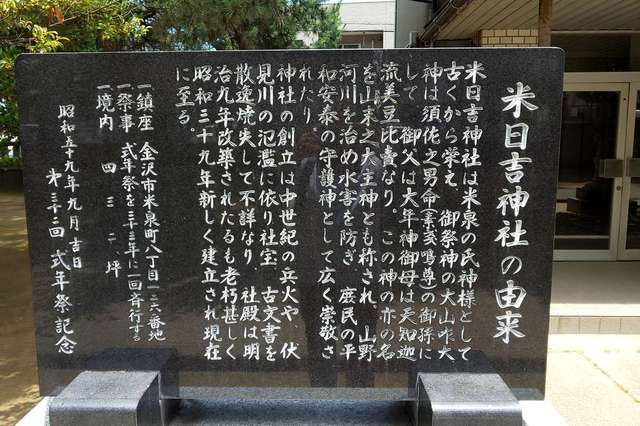 米日吉神社の由来
米日吉神社は米泉の氏神様として
古くから栄え、御祭神の大山咋大
神は須佐之男命(素戔鳴尊)の御孫に
して 御父は大年神御母は天知迦
流美豆比賣なり。この神の亦の名
を山末之大主神とも称され、山野
河川を治め水害を防ぎ 庶民の平
和安泰の守護神として広く崇敬さ
れたり。
神社の創立は中世紀の兵火や 伏
見川の氾濫に依り社宝、古文書を
散逸焼失して不詳なり。社殿は明
治九年改築されたるも老朽甚しく
昭和三十九年新しく建立され現在
に至る。
一鎮座 金沢市米泉町八丁目一二六番地
一祭事 式年祭を三十三年に一回斉行する
一境内 四三二坪
昭和五十九年九月吉日
第三十三回 式年祭記念